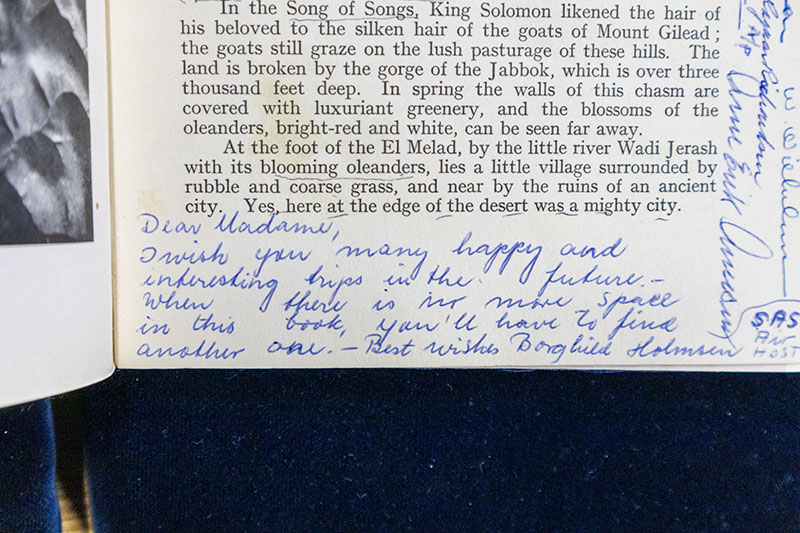 In the Song of Songs, King Solomon likened the hair of
his beloved to the silken hair of the goats of Mount Gilead ;
the goats still graze on the lush pasturage of these hills. The
land is broken by the gorge of the Jabbok, which is over three
thousand feet deep. In spring the walls of this chasm are
covered with luxuriant greenery, and the blossoms of the
oleanders, bright-red and white, can be seen far away.
At the foot of the El Melad, by the little river Wadi Jerash
with its blooming oleanders, lies a little village surrounded by
rubble and coarse grass, and near by the ruins of an ancient
city. Yes, here at the edge of the desert was a mighty city.
Dear Madame,
I wish you many happy and
interesting trips in the future. –
When there is no more space
in this book, you'll have to find
another one. – Best wishes Borghild Holmsen
SAS
HOST